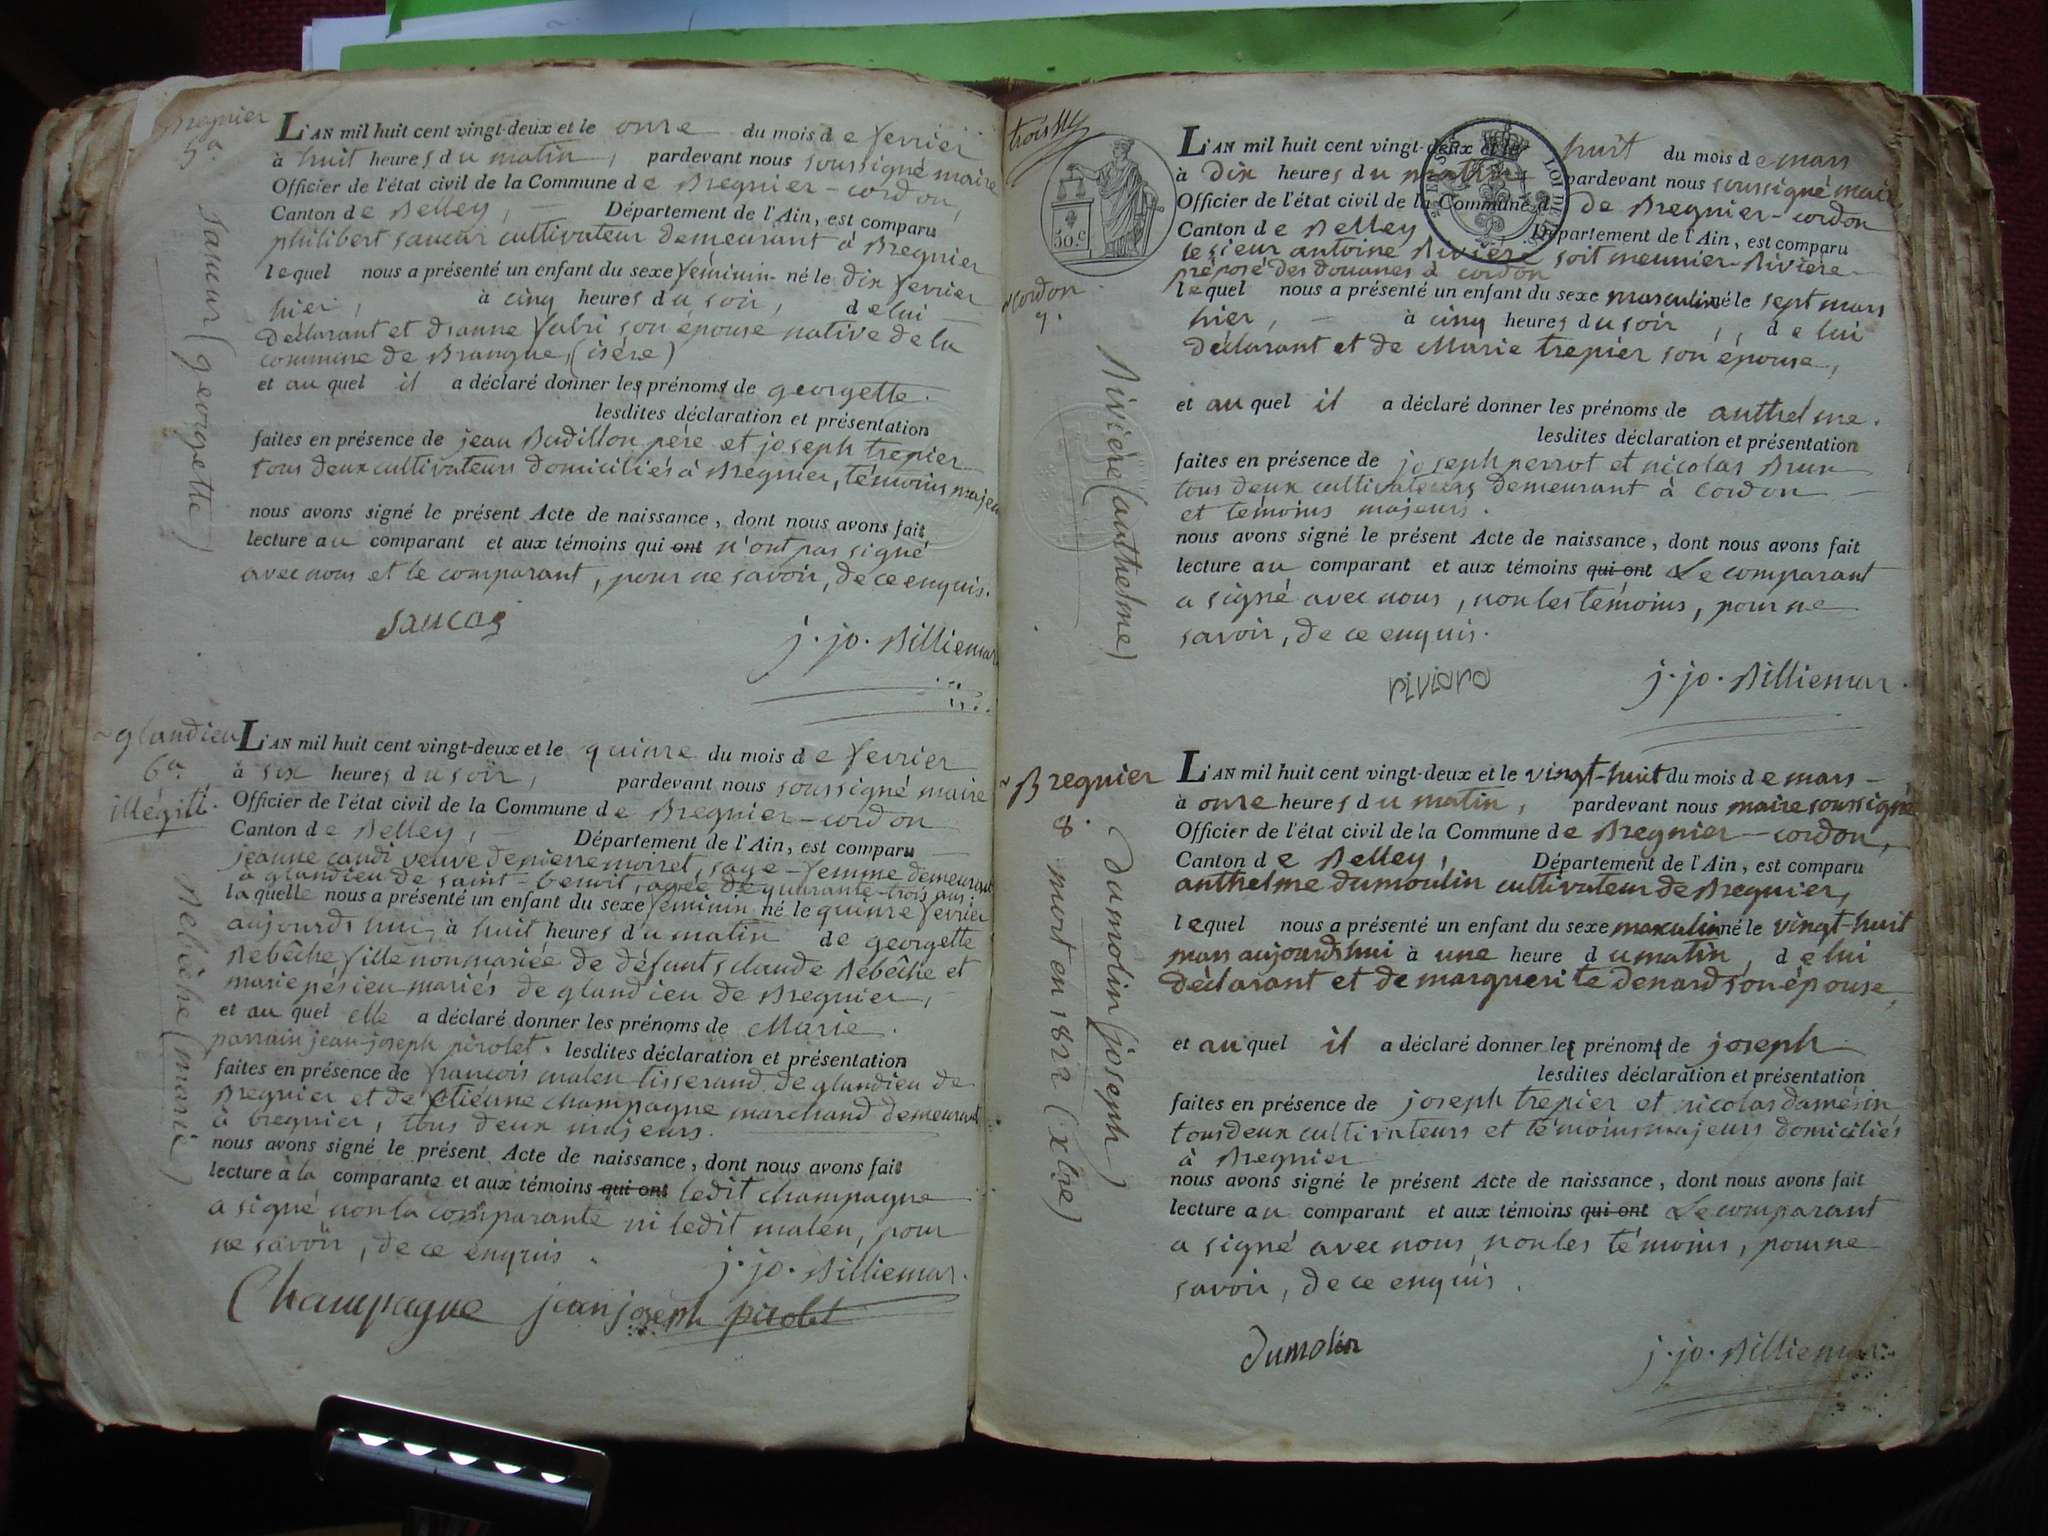 Bregnier
5a.
Saucar (georgette)
L'AN mil huit cent vingt-deux et le onze du mois de fevrier
à huit heures du matin, pardevant nous soussigné maire
Officier de l'état civil de la Commune de Bregnier-cordon,
Canton de Belley, Département de l'Ain, est comparu
philibert saucar cultivateur demeurant à Bregnier
lequel nous a présenté un enfant du sexe féminin né le dix fevrier
hier, à cinq heures du soir, de lui
déclarant et son épouse native de la
commune de Brangue, (isére)
et au quel il a déclaré donner les prénoms de georgette.
lesdites déclaration et présentation
faites en présence de jean Budillon père et joseph trepier
tous deux cultivateurs domiciliés à Bregnier, témoins majeu
nous avons signé le présent Acte de naissance, dont nous avons fait
lecture au comparant et aux témoins qui ont n'ont pas signé
avec nous et le comparant, pour ne savoir, de ce enquis.
j. jo. Billiemar
~ glandieu
6a.
illégit.
Rebêche (marie)
L'AN mil huit cent vingt-deux et le quinze du mois de fevrier
à six heures du soir, pardevant nous soussigné maire
Officier de l'état civil de la Commune de Bregnier-cordon
Canton de Belley, Département de l'Ain, est comparu
jeanne candi veuve de pierre moiret, sage-femme demeurant
à glandieu de saint-benoit, agée de quarante-trois ans.
la quelle nous a présenté un enfant du sexe féminin né le quinze fevrier
aujourd'hui, à huit heures du matin de georgette
Rebêche fille non mariée de défunts claude Rebêche et
marie pésieu mariés de glandieu de Bregnier,
et au quel elle a déclaré donner les prénoms de Marie.
parrain jean-joseph pirolet. lesdites déclaration et présentation
faites en présence de francois malen tisserand de glandieu de
Bregnier et de etienne champagne marchand demeurant
à bregnier, tous deux majeurs.
nous avons signé le présent Acte de naissance, dont nous avons fait
lecture à la comparante et aux témoins qui ont ledit champagne
a signé non la comparante ni ledit malen, pour
ne savoir, de ce enquis.
j. jo. Billiemar.
Champagne jean joseph pirolet
50.c
LOI DE
cordon
7.
Rivière (anthelme)
L'AN mil huit cent vingt-deux et le huit du mois de mars
à dix heures du matin pardevant nous soussigné maire
Officier de l'état civil de la Commune de Bregnier-cordon
Canton de Belley Département de l'Ain, est comparu
le sieur antoine Rivière soit meunier-Rivière
préposé des douanes à cordon
lequel nous a présenté un enfant du sexe masculin né le sept mars
hier, à cinq heures du soir, de lui
déclarant et de Marie trepier son épouse,
et au quel il a déclaré donner les prénoms de anthelme.
lesdites déclaration et présentation
faites en présence de joseph perrot et nicolas Brun
tous deux cultivateurs demeurant à cordon
et témoins majeurs.
nous avons signé le présent Acte de naissance, dont nous avons fait
lecture au comparant et aux témoins qui ont Le comparant
a signé avec nous, non les témoins, pour ne
savoir, de ce enquis.
riviara
j. jo. Billiemar.
~ Bregnier
8.
Dumolin (joseph)
mort en 1822
L'AN mil huit cent vingt-deux et le vingt-huit du mois de mars
à onze heures du matin, pardevant nous maire soussigné
Officier de l'état civil de la Commune de Bregnier-cordon,
Canton de Belley, Département de l'Ain, est comparu
anthelme dumoulin cultivateur de Bregnier,
lequel nous a présenté un enfant du sexe masculin né le vingt-huit
mars aujourd'hui à une heure du matin, de lui
déclarant et de marguerite denard son épouse,
et au quel il a déclaré donner les prénoms de joseph
lesdites déclaration et présentation
faites en présence de joseph trepier et nicolas damésin,
tous deux cultivateurs et témoins majeurs domiciliés
à Bregnier
nous avons signé le présent Acte de naissance, dont nous avons fait
lecture au comparant et aux témoins qui ont Le comparant
a signé avec nous non les témoins, pour ne
savoir, de ce enquis.
Dumolin
j. jo. Billiemar.